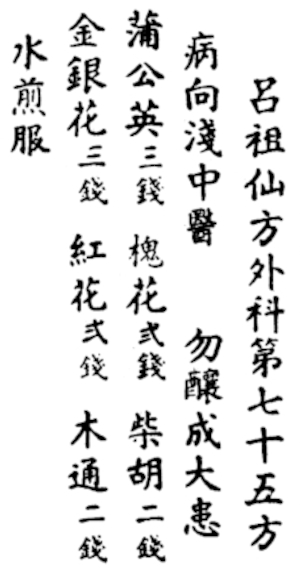 呂祖仙方外科第七十五方
病向淺中醫　勿釀成大患
蒲公英三錢　槐花弍錢　柴胡二錢
金銀花三錢　紅花弍錢　木通二錢
水煎服